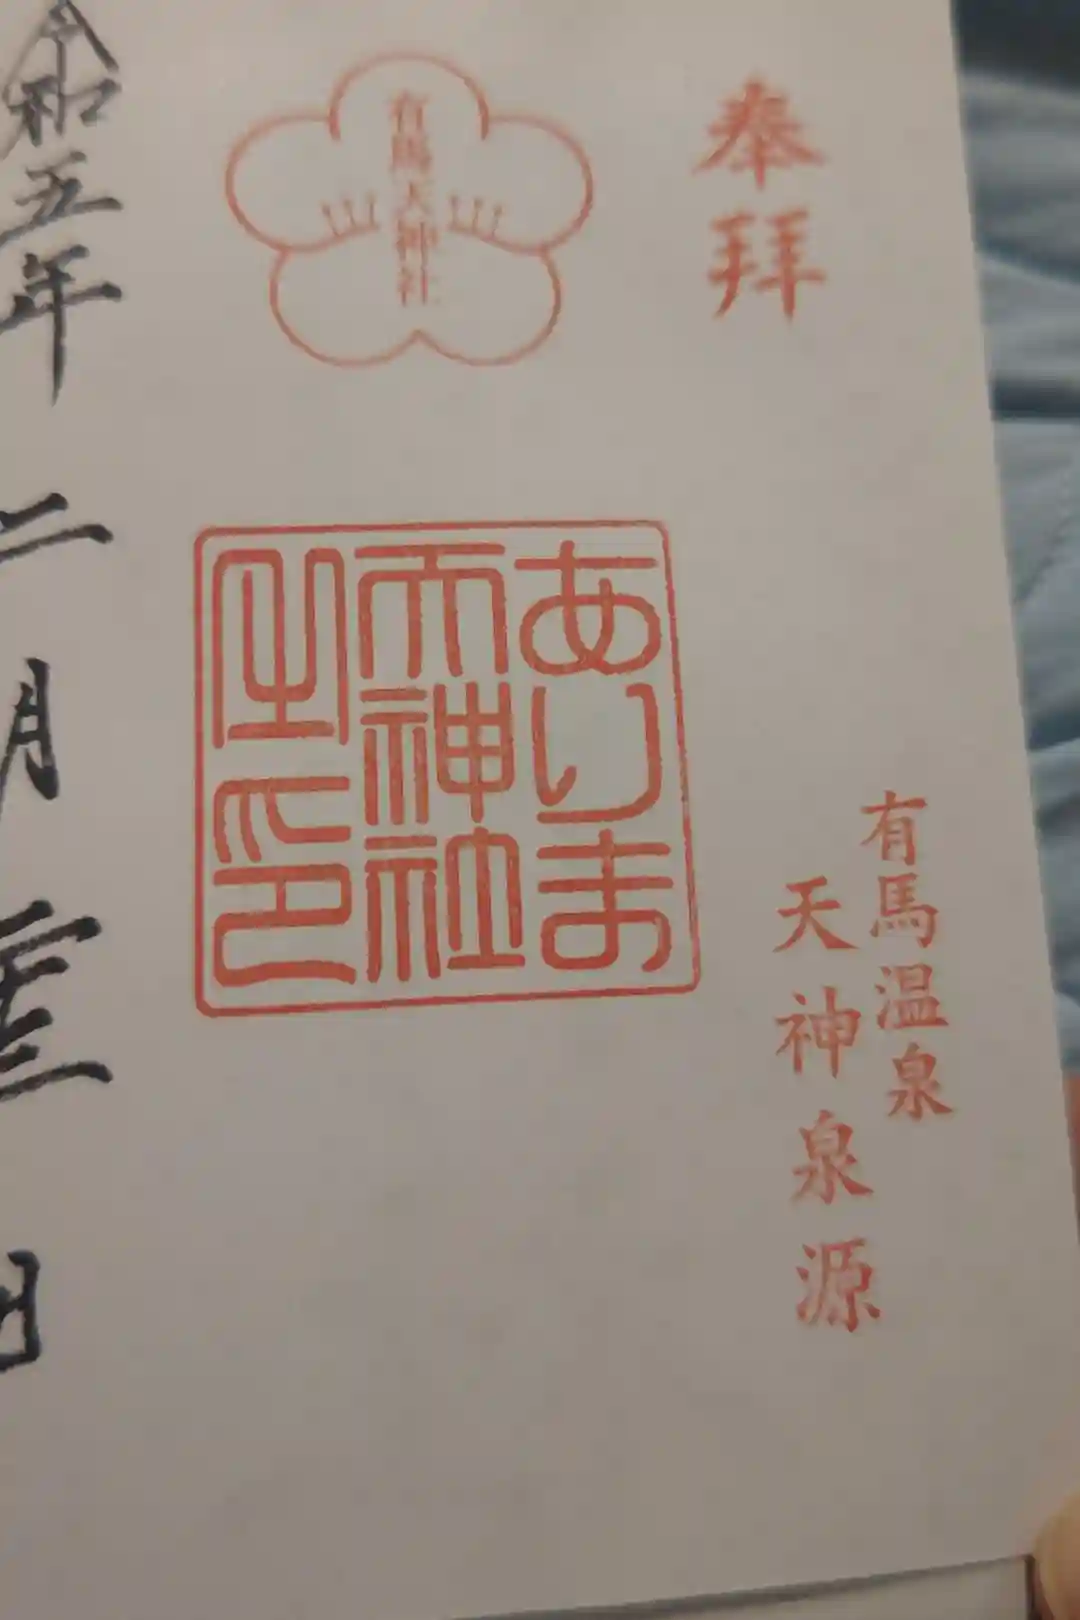 奉拝
有馬温泉
天神泉源
有馬天神社
ありま
天神社
之印
令和五年二月
日